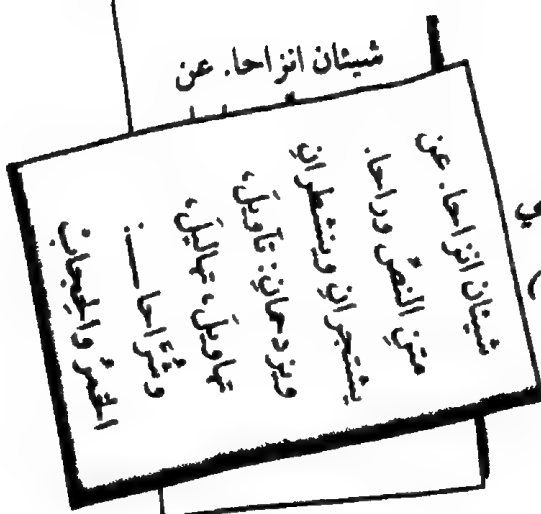 شيئان انزاحا. عن
شيئان انزاحا. عن
متنِ النصِّ وراحا.
يشتجرانِ وينشطرانِ
ويزدحمانِ: تآويلَ،
تهاويلَ، تهاليلَ،
وشَرَاحـــا:
الخمرُ والحِجابُ
ي